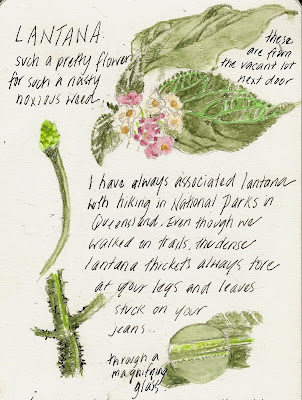 LANTANA
such a pretty flower
for such a nasty
noxious weed
these
are from
the vacant lot
next door
I have always associated lantana
with hiking in National Parks in
Queensland. Even though we
walked on trails, the dense
lantana thickets always tore
at your legs and leaves
stuck on your
jeans..
through a
magnifying
glass